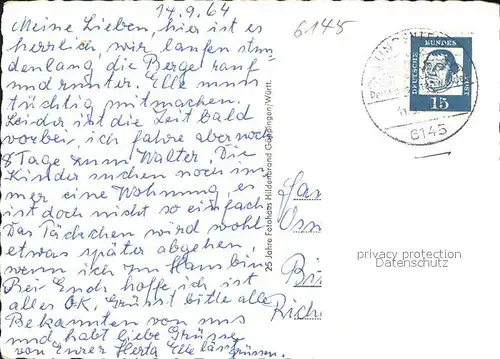 14.9.64
6145
Meine Lieben, hier ist es
herrlich wir laufen stun
denlang die Berge rauf
und runter. Elle muss
tüchtig mitmachen.
Leider ist die Zeit bald
vorbei, ich fahre aber noch
8 Tage zum Walter. Die
Kinder suchen noch im
mer eine Wohnung, es
ist doch nicht so einfach
Das Päckchen wird wohl
etwas später abgehen,
wenn ich zu Haus bin
Bei Euch hoffe ich, ist
alles OK. Grüsst bitte alle
Bekannten von uns
und habt liebe Grüsse
von Eurer Herta Elle läs grüssen.
25 Jahre Fotohaus Hildenbrand Göppingen/Württ.
DEUTSCHE BUNDES POST
15
6145
privacy protection
Datenschutz